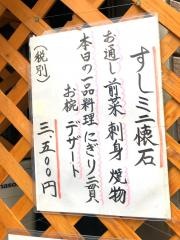 すしミニ懐石
お通し 前菜 刺身 焼物
本日の一品料理 にぎり三貫
お椀 デザート
(税別) 三、五〇〇円